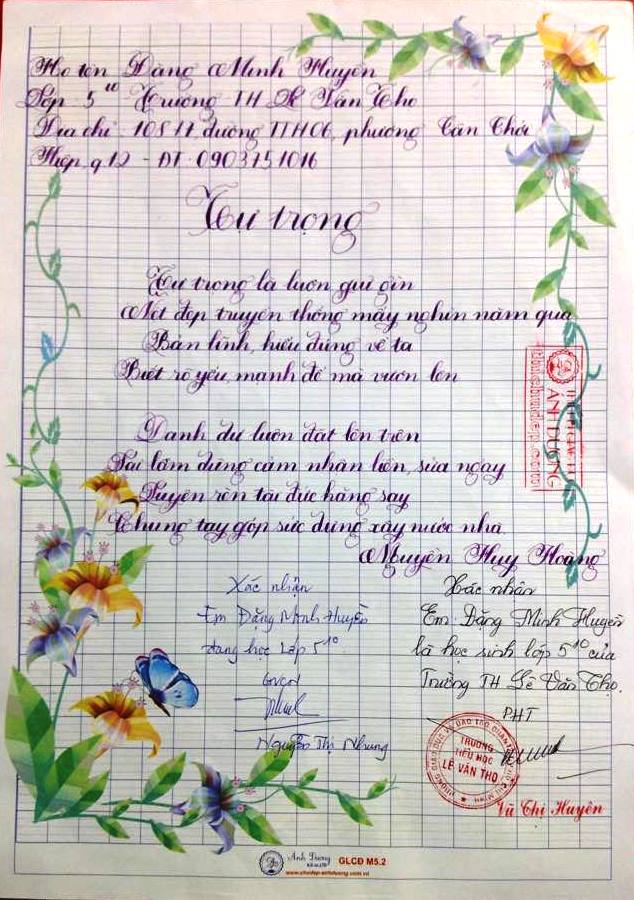 Họ tên Đặng Minh Huyền
Lớp: 5¹⁰ Trường TH Lê Văn Thọ
Địa chỉ: 108 17, đường TTH06, phường Tân Thới
Hiệp, q.12 - ĐT: 0903751016
Tự trọng
Tự trọng là luôn giữ gìn
Nét đẹp truyền thống mấy nghìn năm qua
Bản lĩnh, hiểu đúng về ta
Biết rõ yếu, mạnh để mà vươn lên
Danh dự luôn đặt lên trên
Sai lầm dũng cảm nhận liền, sửa ngay
Luyện rèn tài đức hăng say
Chung tay góp sức dựng xây nước nhà.
Nguyễn Huy Hoàng
Xác nhận
Em Đặng Minh Huyền
đang học Lớp 5¹⁰
GVCN
Nguyễn Thị Nhung
Xác nhận
Em Đặng Minh Huyền
là học sinh lớp 5¹⁰ của
Trường TH Lê Văn Thọ.
PHT
TRƯỜNG
TIỂU HỌC
LÊ VĂN THỌ
Vũ Thị Huyên
ÁNH DƯƠNG
Ánh Dương
GLCĐ M5.2
www.chudep-anhduong.com.vn